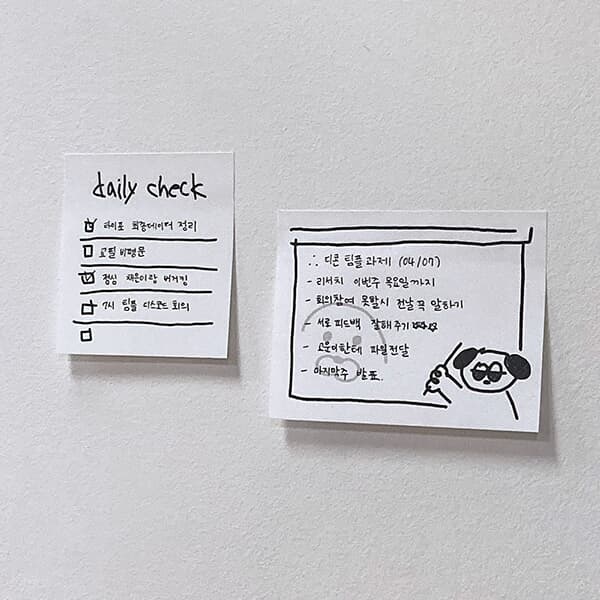 daily check
타이포 최종데이터 정리
교필 비평문
점심 채은이랑 버거킹
7시 팀플 디스코드 회의
∴ 디콘 팀플 과제 (04/07)
- 리서치 이번주 목요일까지
- 회의참여 못할시 전날 꼭 말하기
- 서로 피드백 잘해주기 ☆☆☆
- 고운이한테 파일전달
- 마지막주 발표.